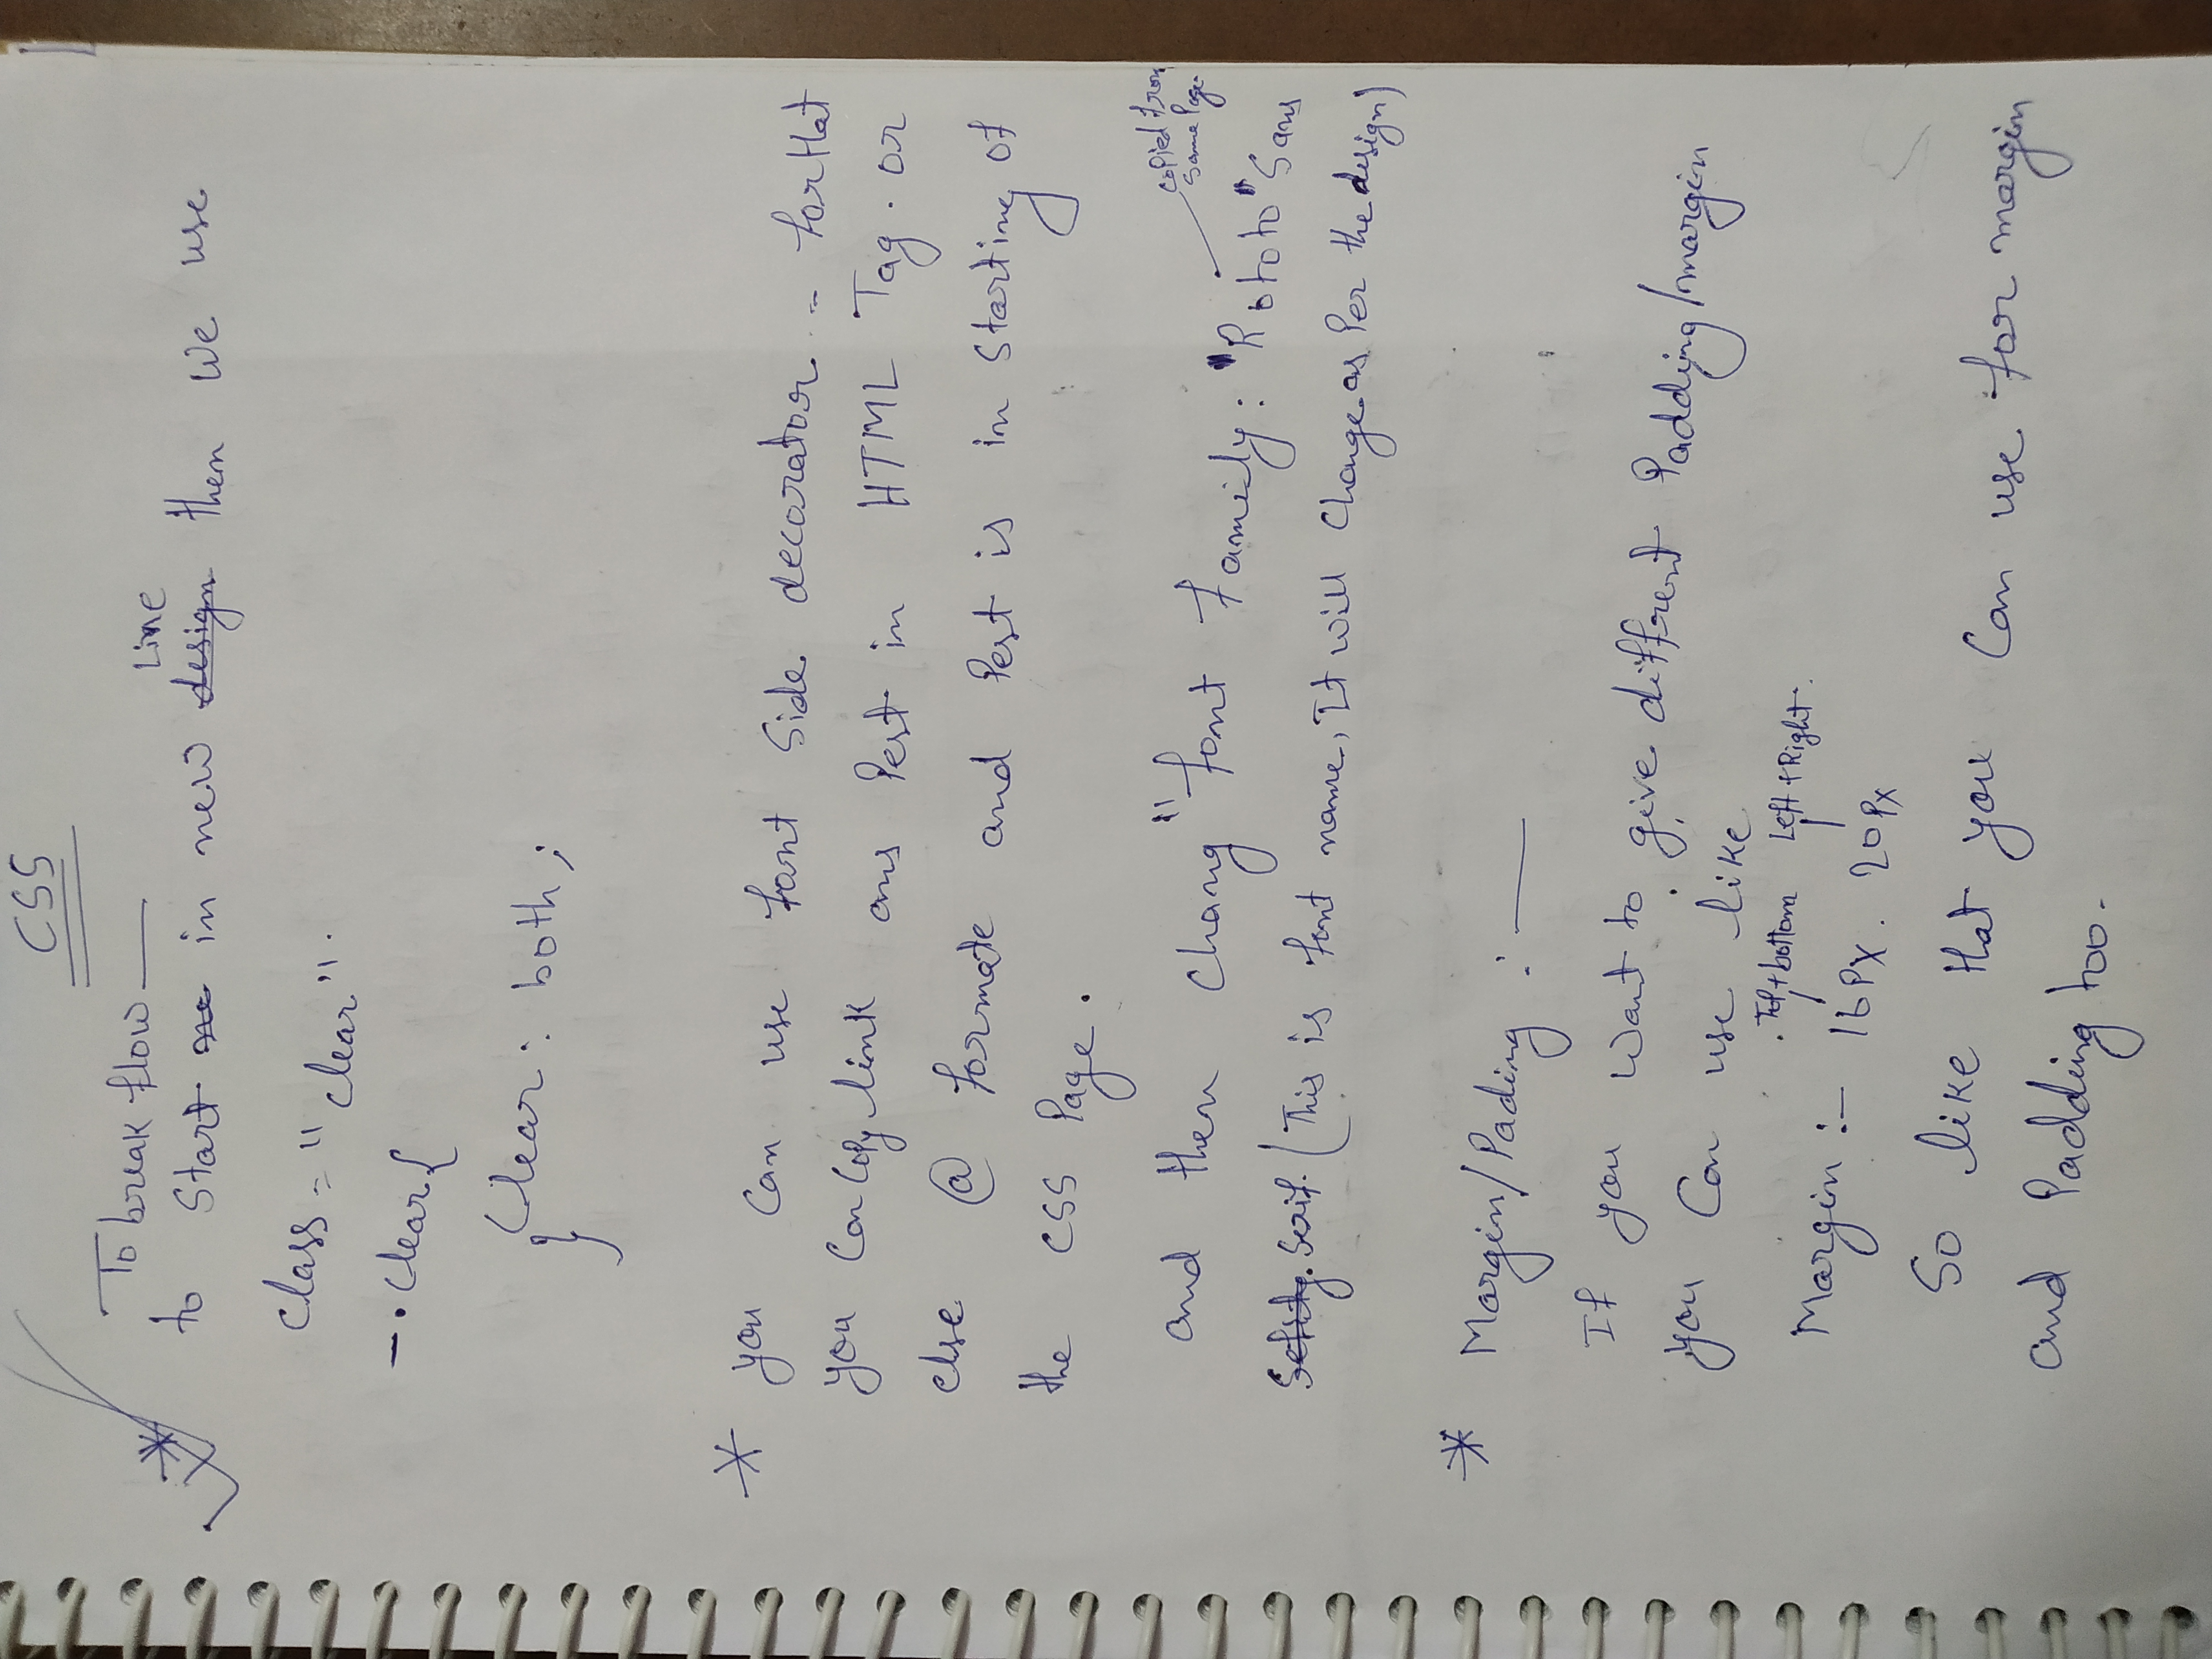 CSS
To break flow
Line
to Start in new design then we use
class = "clear".
- . clear{
Clear : both ;
}
* you can use font Side decorator = for that
you can copy link ans Pest in HTML Tag. or
else @ formate and Pest is in starting of
the CSS Page.
copied from
same Page
and then chang "font family: "Rototo" Sans
Serif. (This is font name, It will change as Per the design)
* Margin/Pading :
If you want to give diffrent Padding/margin
you can use like
Top+bottom Left+Right.
Margin :- 16Px. 20Px
So like that you can use for margin
and Padding too.